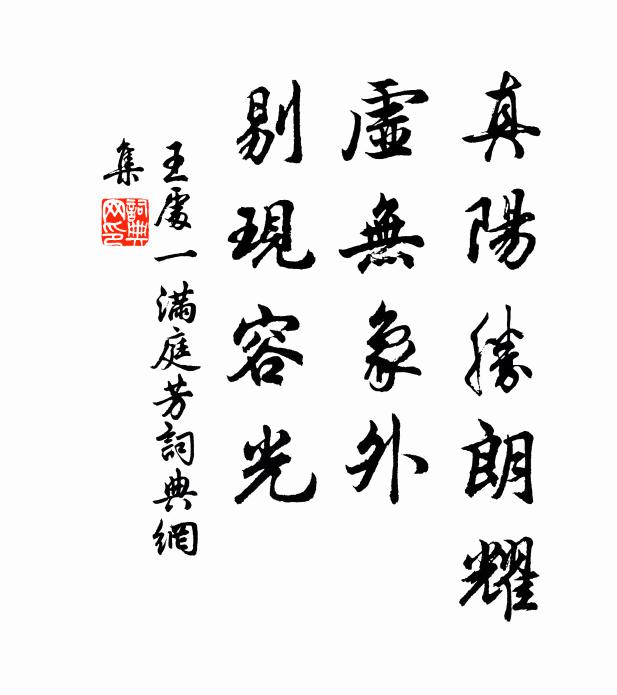 真陽勝朗耀
虛無象外
剔現容光
王處一滿庭芳詞典網
集
詞典
网印